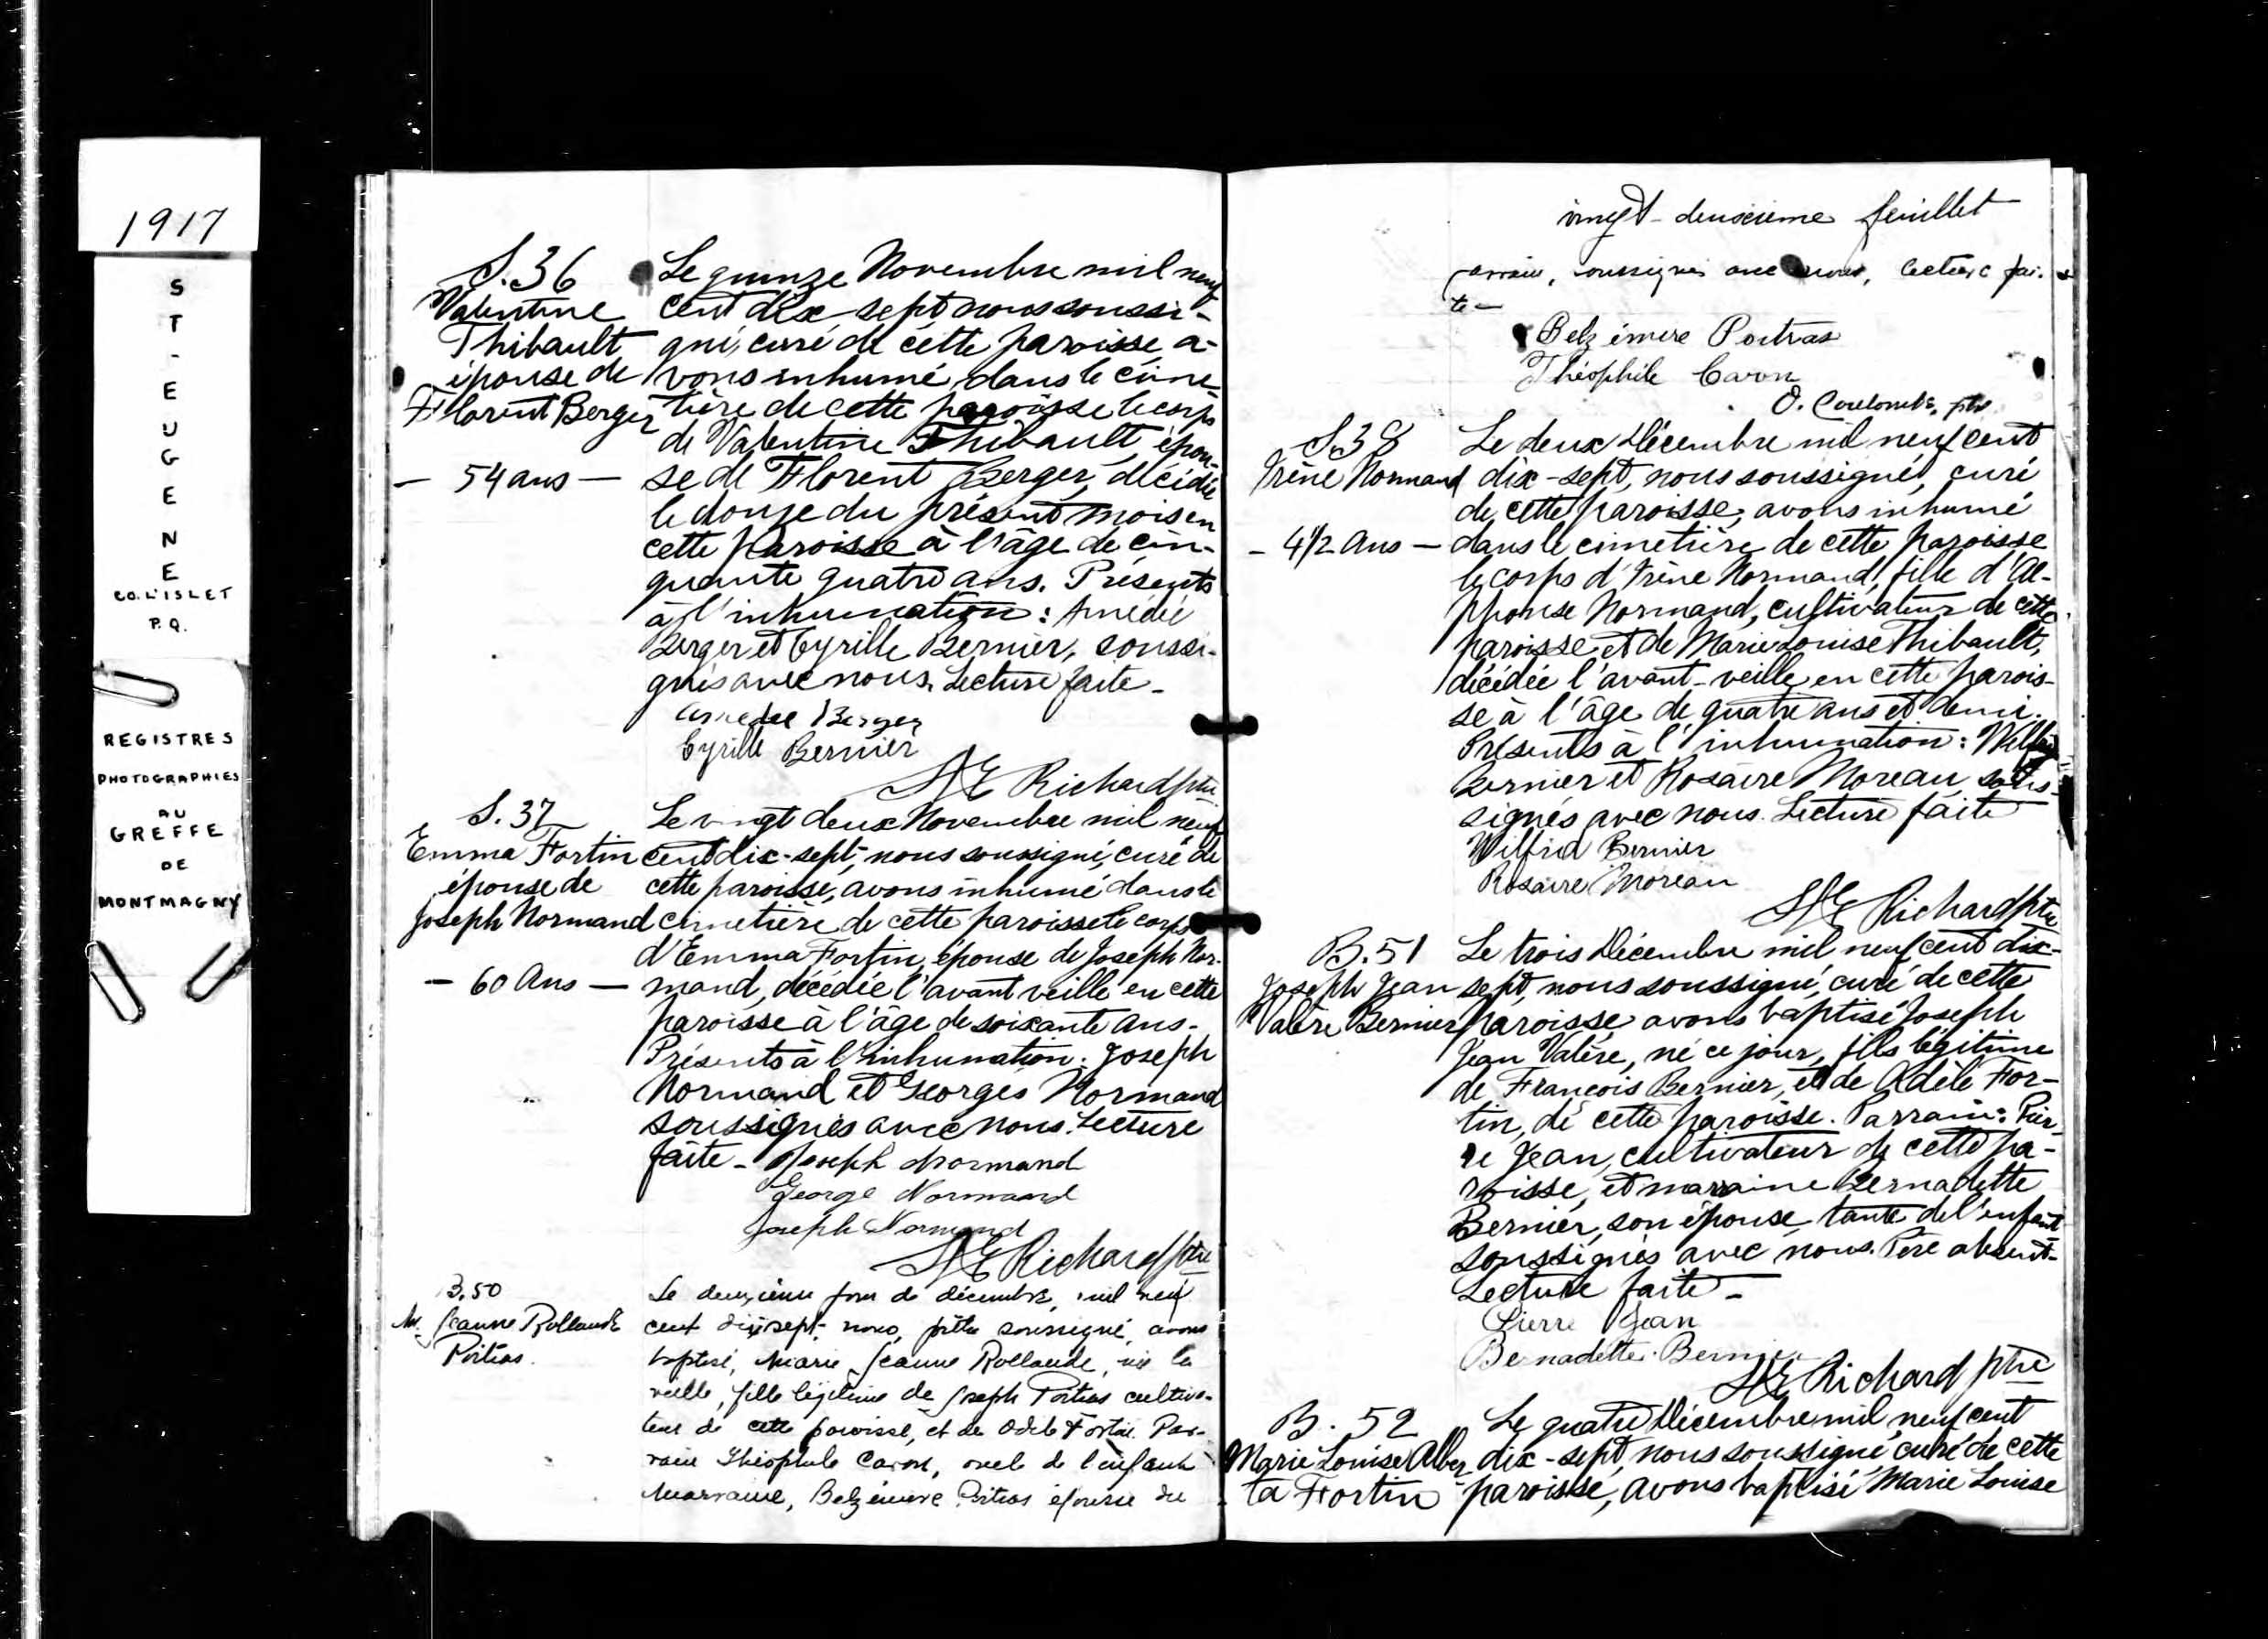 1917
ST-EUGENE
CO. L'ISLET
P.Q.
REGISTRES
PHOTOGRAPHIES
AU
GREFFE
DE
MONTMAGNY
S.36
Valentine
Thibault
épouse de
Florent Berger
— 54 ans —
Le quinze Novembre mil neuf
cent dix-sept nous soussi-
gné, curé de cette paroisse a-
vons inhumé dans le cime-
tière de cette paroisse le corps
de Valentine Thibault, épou-
se de Florent Berger, décédée
le douze du présent mois en
cette paroisse à l'âge de cin-
quante quatre ans. Présents
à l'inhumation : Amédée
Berger et Cyrille Bernier, soussi-
gnés avec nous. Lecture faite -
Amedee Berger
Cyrille Bernier
Richard ptre
S. 37
Emma Fortin
épouse de
Joseph Normand
— 60 Ans —
Le vingt deux Novembre mil neuf
cent dix-sept, nous soussigné, curé de
cette paroisse, avons inhumé dans le
cimetière de cette paroisse le corps
d'Emma Fortin, épouse de Joseph Nor-
mand, décédée l'avant veille en cette
paroisse à l'âge de soixante ans -
Présents à l'inhumation : Joseph
Normand et Georges Normand
soussignés avec nous. Lecture
faite - Joseph Normand
George Normand
Joseph Normand
Richard ptre
B.50
M. Jeanne Rollande
Poitras.
Le deuxième jour de décembre, mil neuf
cent dix-sept, nous, prêtre soussigné, avons
baptisé, Marie Jeanne Rollande, née la
veille, fille légitime de Joseph Poitras cultiva-
teur de cette paroisse, et de Odile Fortin. Par-
rain Théophile Caron, oncle de l'enfant
Marraine, Belzémire Poitras épouse du
vingt-deuxième feuillet
parrain, soussignés avec nous, lecture fai-
te -
Belzémire Poitras
Théophile Caron
O. Coulombe, ptre
S.38
Irène Normand
— 4 1/2 Ans —
Le deux Décembre mil neuf cent
dix-sept, nous soussigné, curé
de cette paroisse, avons inhumé
dans le cimetière de cette paroisse
le corps d'Irène Normand, fille d'Al-
phonse Normand, cultivateur de cette
paroisse et de Marie Louise Thibault,
décédée l'avant-veille en cette parois-
se à l'âge de quatre ans et demi.
Présents à l'inhumation : Wilfrid
Bernier et Rosaire Moreau, sous-
signés avec nous. Lecture faite
Wilfrid Bernier
Rosaire Moreau
Richard ptre
B.51
Joseph Jean
Valère Bernier
Le trois Décembre mil neuf cent dix-
sept, nous soussigné, curé de cette
paroisse avons baptisé Joseph
Jean Valère, né ce jour, fils légitime
de François Bernier, et de Adèle For-
tin, de cette paroisse. Parrain : Pier-
re Jean, cultivateur de cette pa-
roisse, et marraine Bernadette
Bernier, son épouse, tante de l'enfant
soussignés avec nous. Père absent -
Lecture faite -
Pierre Jean
Bernadette Bernier
Richard ptre
B. 52
Marie Louise Alber
ta Fortin
Le quatre Décembre mil neuf cent
dix-sept, nous soussigné, curé de cette
paroisse, avons baptisé Marie Louise